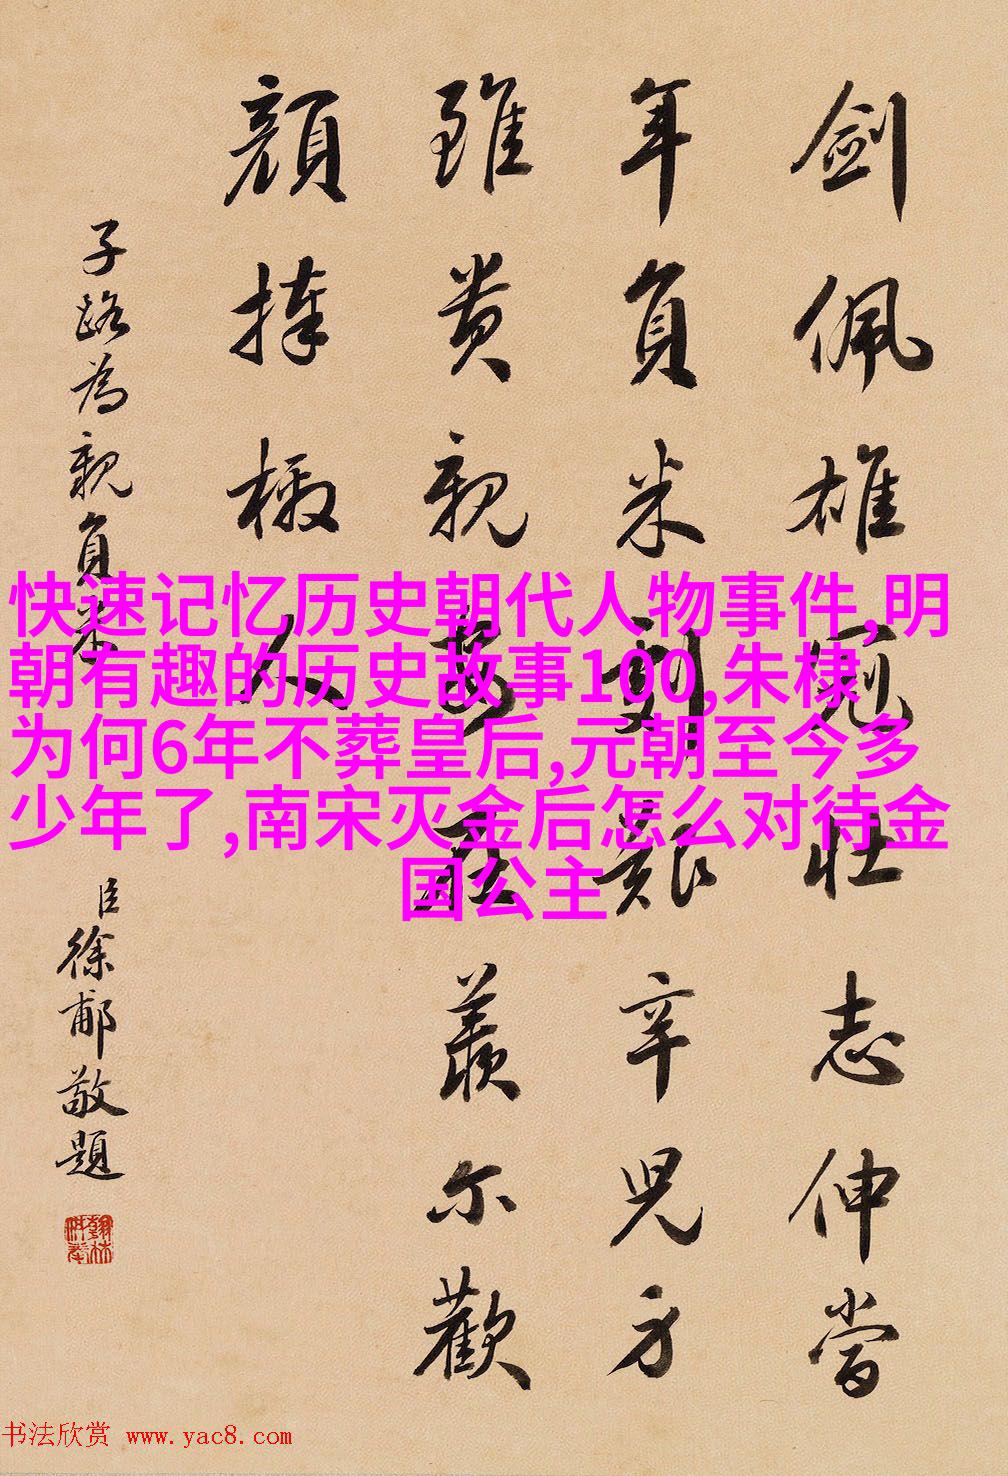 劍佩雄冠壯志伸當
年負米劇艱辛兒身
雖貴親安在羨爾歡
顏捧檄人
子路為親負米
臣徐郙敬題
快速记忆历史朝代人物事件,明
朝有趣的历史故事100,朱棣
为何6年不葬皇后,元朝至今多
少年了,南宋灭金后怎么对待金
国公主
书法欣赏 www.yac8.com